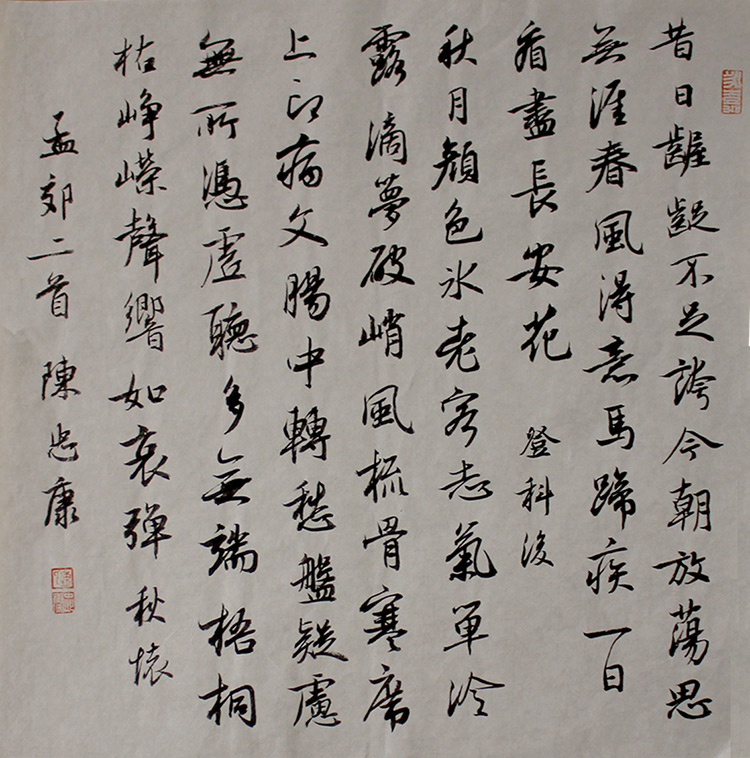 昔日齷齪不足誇今朝放蕩思
無涯春風得意馬蹄疾一日
看盡長安花 登科後
秋月顏色冰老客志氣單冷
露滴夢破峭風梳骨寒席
上印病文腸中轉愁盤疑慮
無所憑虛聽多無端梧桐
枯崢嶸聲響如哀彈 秋懷
孟郊二首 陳忠康